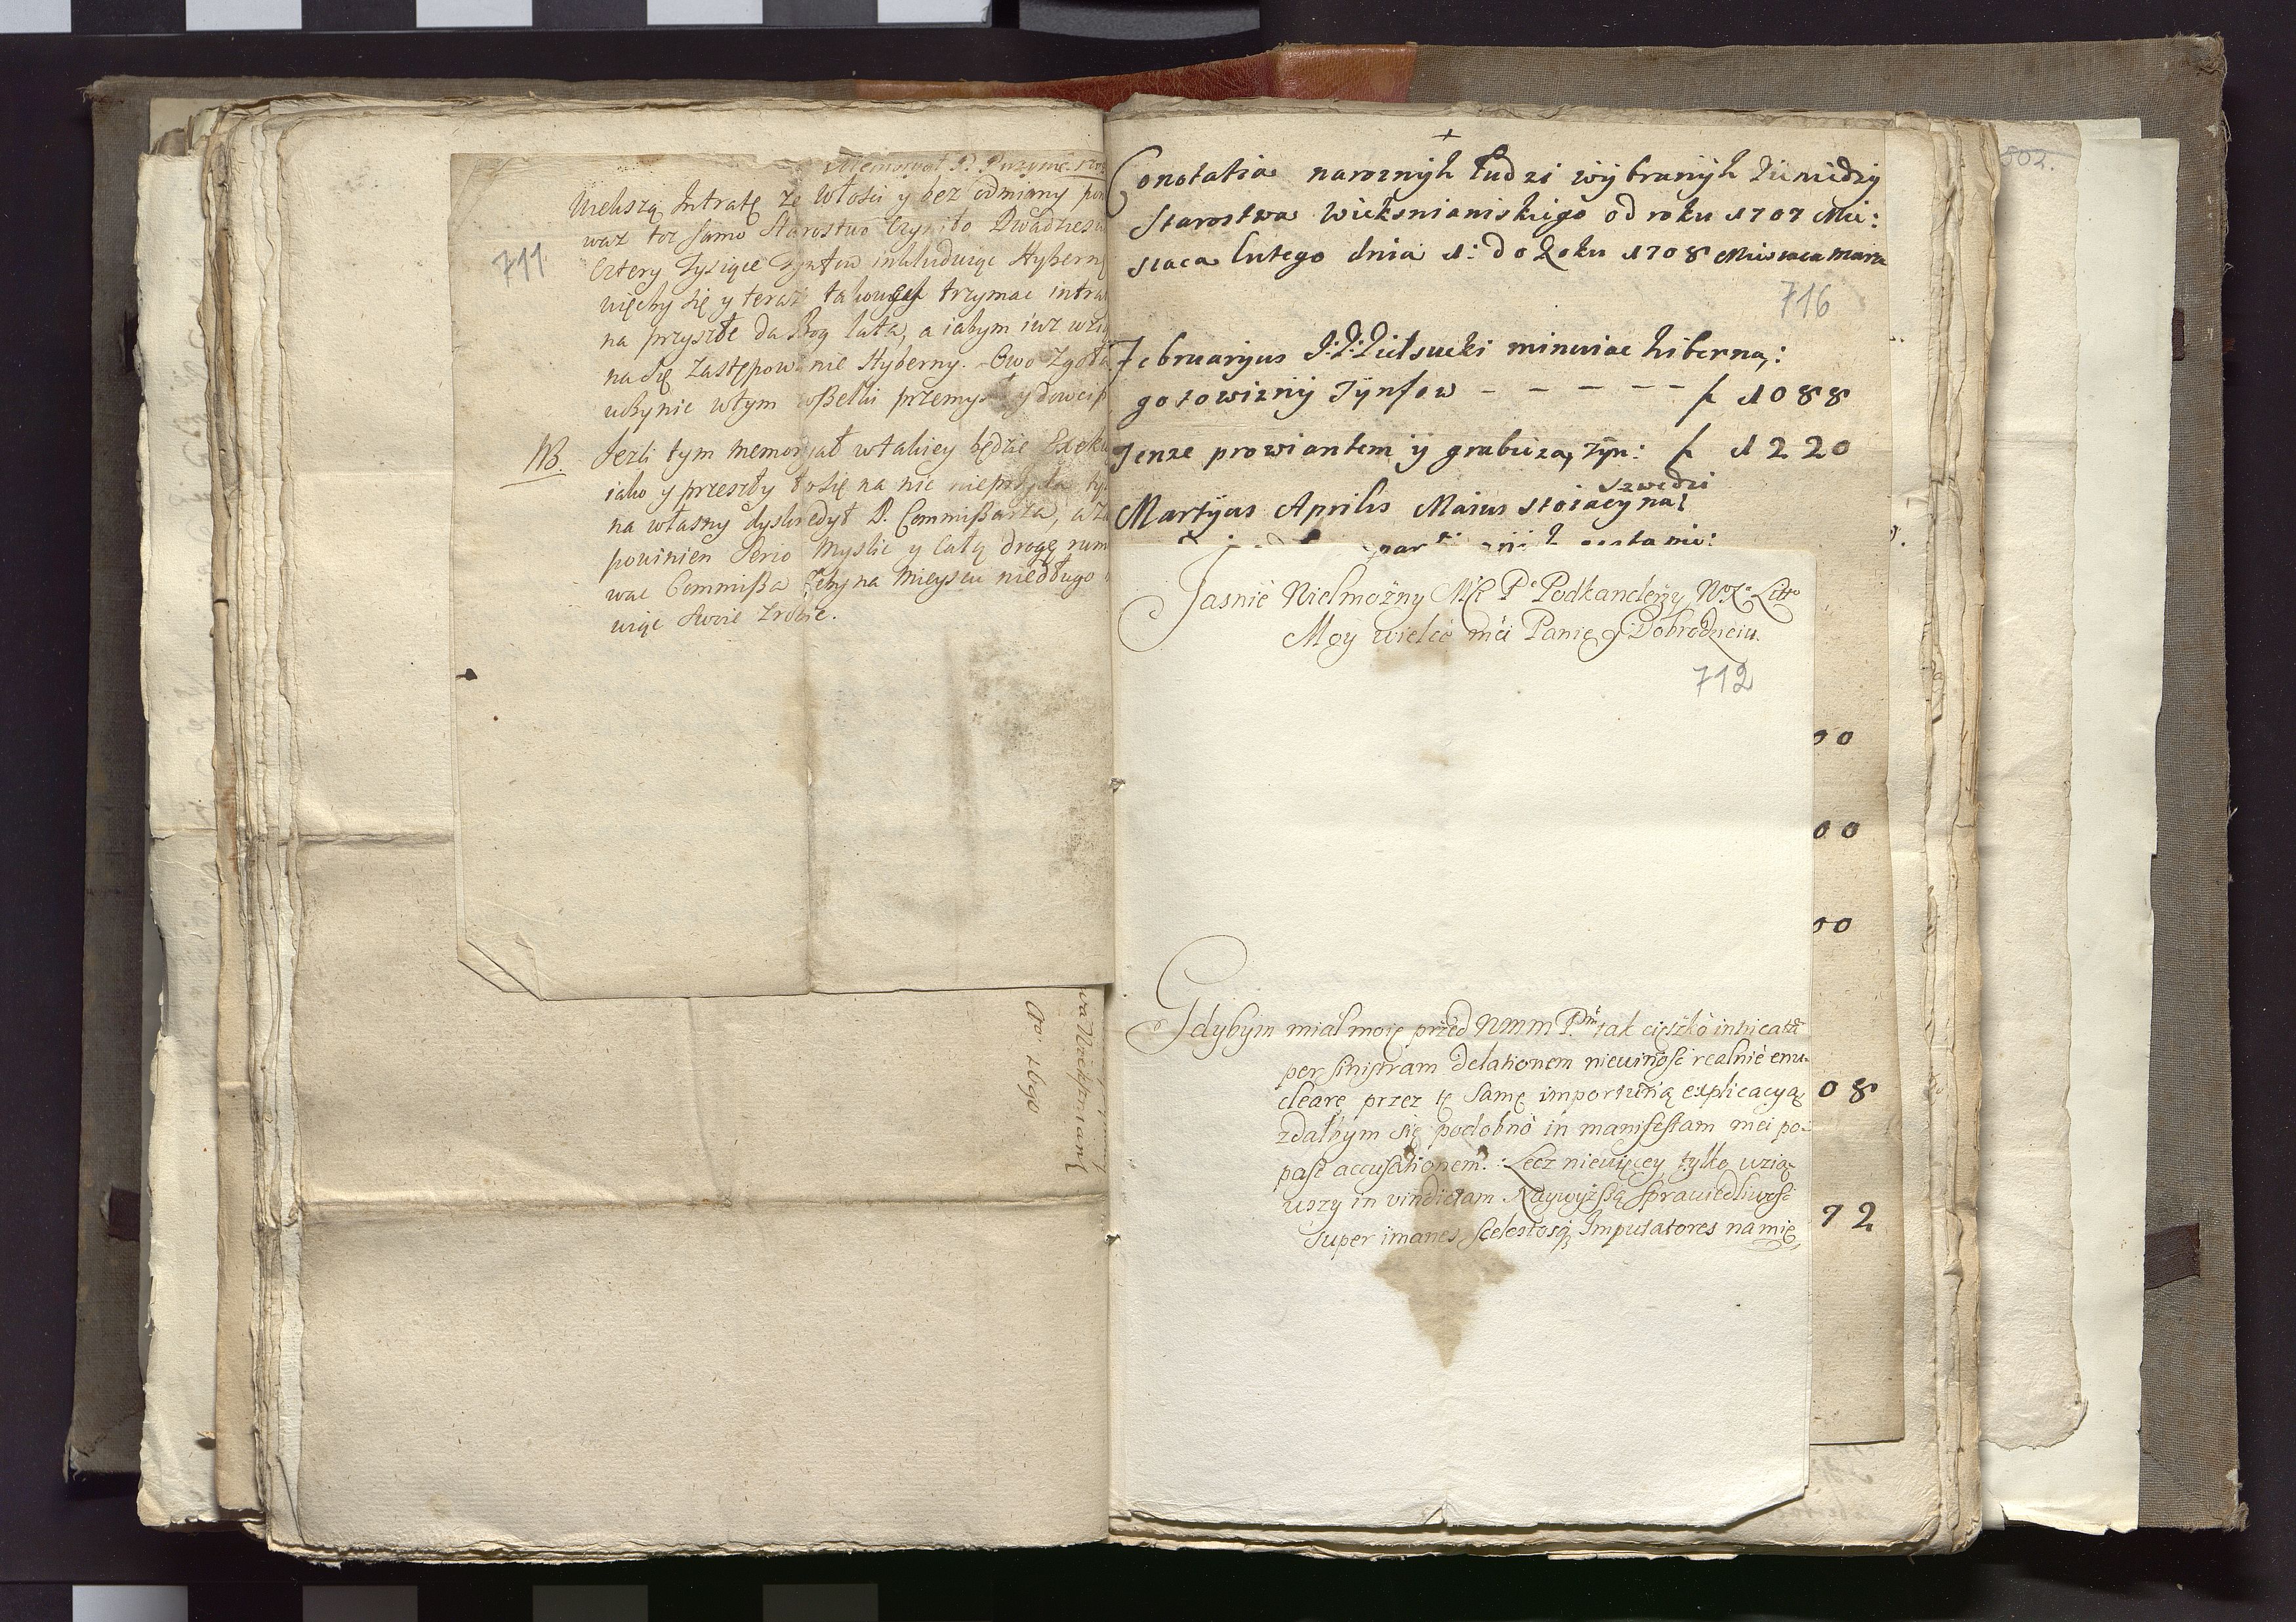 Memoryał P. Puzyny
711
Wiekszą Intratę ze Włosci y bez odmiany pon
waz toz samo Starostwo Czyniło Dwadziescia
Cztery Tysiące Tynfow inkluduiąc Hybernę
więc by się y teraz takowych trzymac intrat
na przyszłe da Bog lata, a iabym iuz wziął
na się zastępowanie Hyberny. Owo zgoła
uczynic wtym wszelki przemysł y dowcip
NB. Jezli tym memoryał wtakiey będzie Exeku
iako y przeszły to się na nic nieprzyda ty
na własny dyskredyt P. Commissarza, a za
powinien Serio Myslic y całą drogę rum
wac Commissarz zeby na Mieyscu niedługo
uiąc Swoie zrobic.
wa Wiekszniansk
Ao. 1690
502.
+
Conotatia naroznÿh Ludzi wÿbranÿh Piiniędzy
Starostwa Wieksnianiskigo od roku 1707 Mie:
siaca Lutego dnia 1: do Roku 1708 Miesiaca Marca
716
Februarÿus J:P: Piłsucki minuiae hiberną:
gotowiznÿ Tÿnfow - - - - - f 1088
Tenze prowiantem ÿ grabieza, Tÿn: f 1220
Szwedzi
Martÿus Aprilis Maius stoiacÿ na
00
00
00
08
72
Jasnie Wielmożny Mści Pe Podkanclerzy W. X. Litto
Moÿ wielce mći Panie y Dobrodzieiu.
712
Gdybÿm miał moię przed WMM Pnm tak cięszko intricatā
per sinistram delationem niewinnosc realnie enu-
cleare przez tę Samę importunną explicacyą
zdałbym się podobno in manifestam mei po-
pasc accusationem. Lecz niewięcey tylko wzią-
wszy in vindictam Naywyższą Sprawiedliwosc
super imanes scelestosq Imputatores na mię,